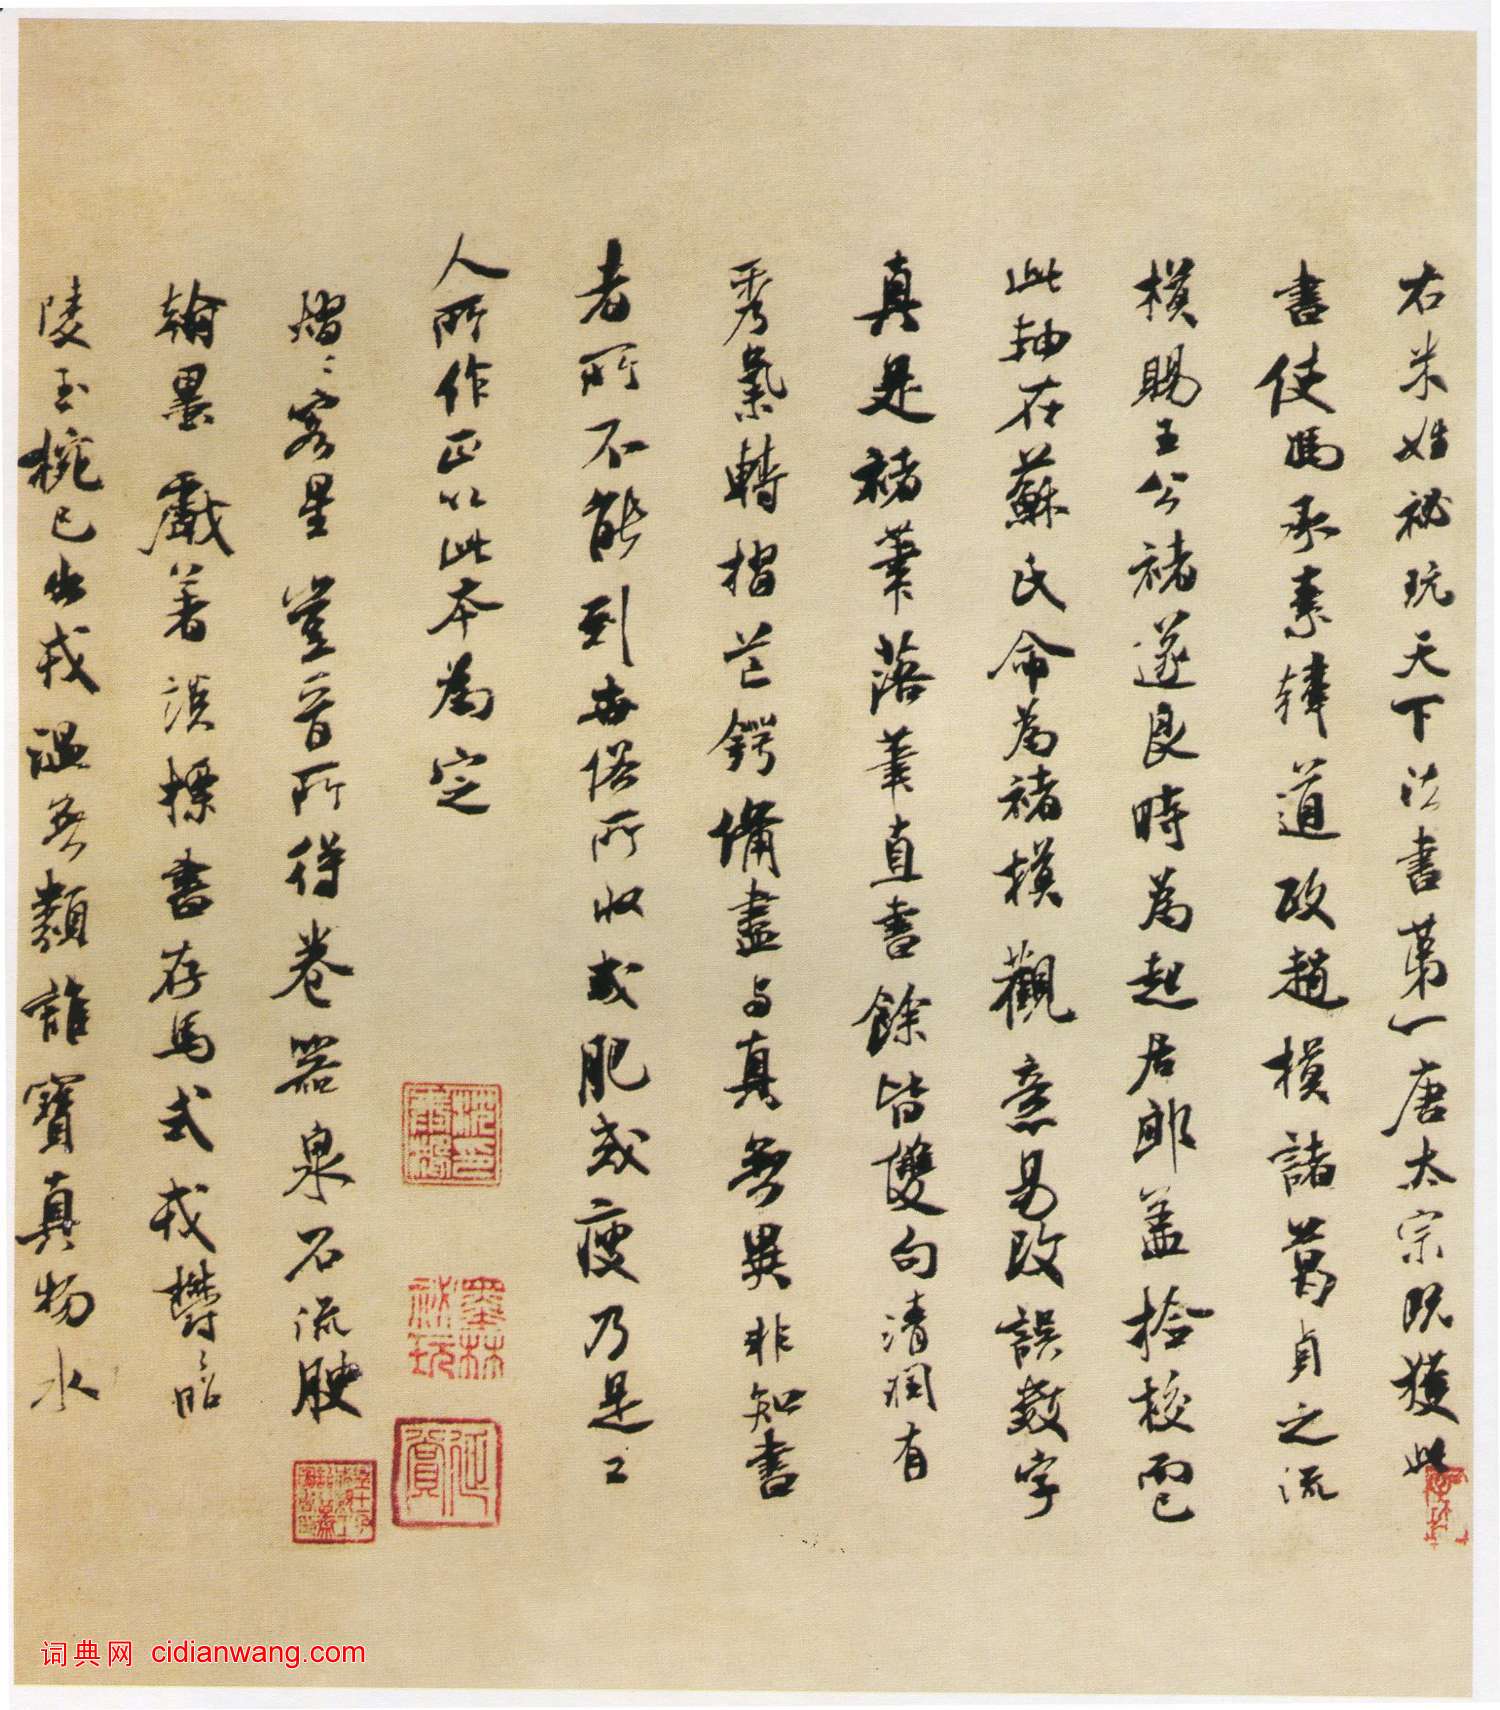 右米姓祕玩天下法書第一唐太宗既獲此
書使馮承素韓道政趙模諸葛貞之流
模賜王公褚遂良時為起居郎蓋撿校而已
此軸在蘇氏命為褚模觀意易改誤數字
真是褚筆落筆直書餘皆雙句清潤有
秀氣轉摺芒鍔備盡與真無異非知書
者所不能到世俗所收或肥或瘦乃是工
人所作正以此本為定
熠〻客星豈晉所得卷器泉石流腴
翰墨戲著談標書存馬式我欝〻昭
陵玉椀已出戎溫無類誰寶真物水
墨林祕玩
词典网 cidianwang.com